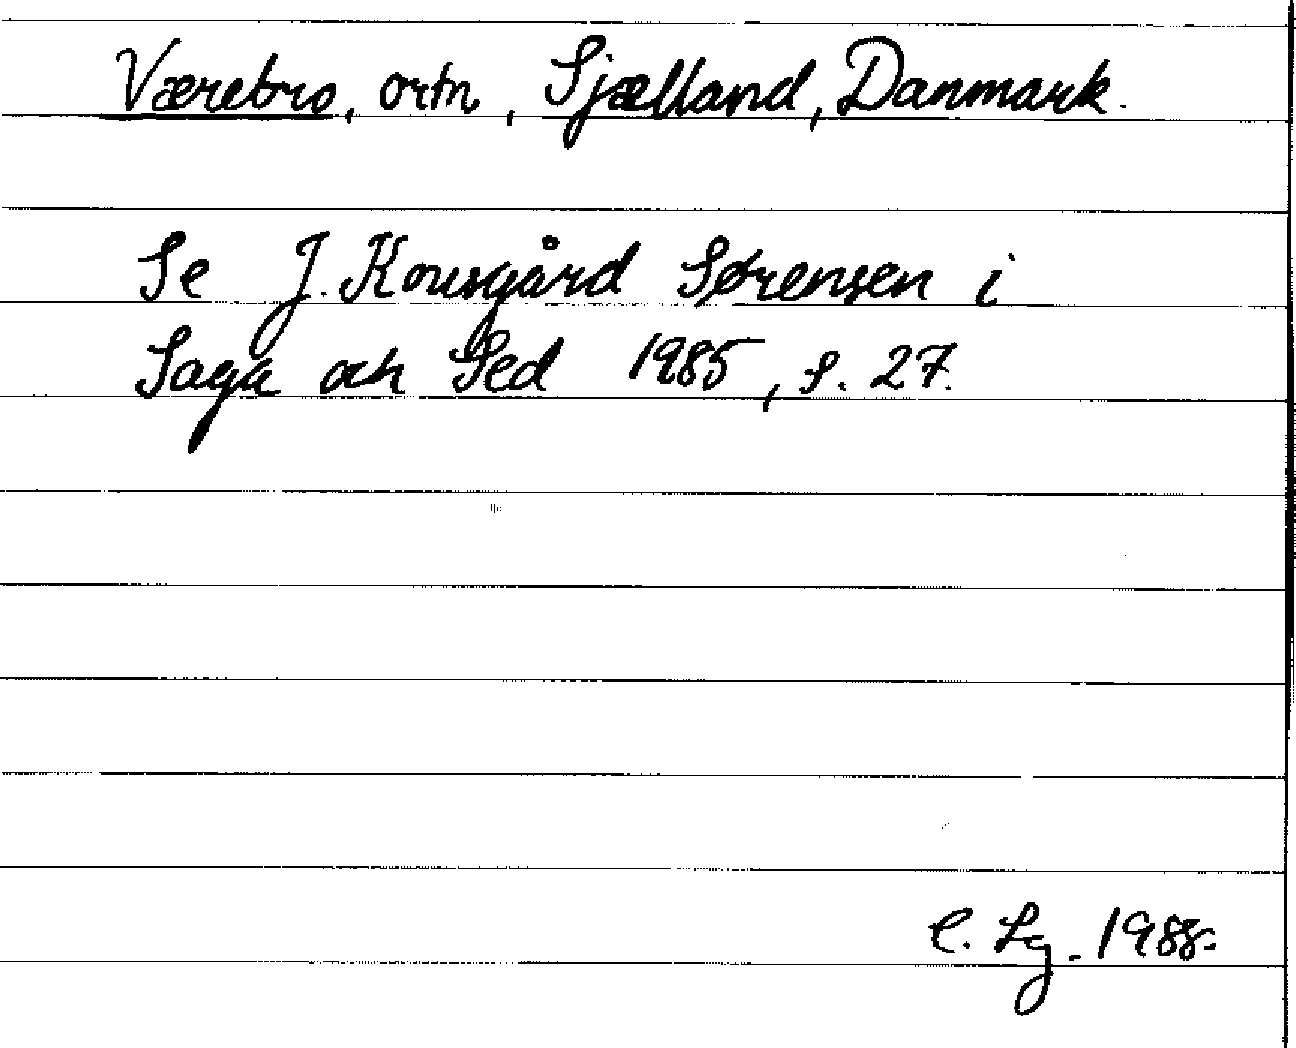 Værebro, ortn, Sjælland, Danmark.
Se J. Kousgård Sørensen i
Saga och Sed 1985, s. 27.
C. Lg. 1988.